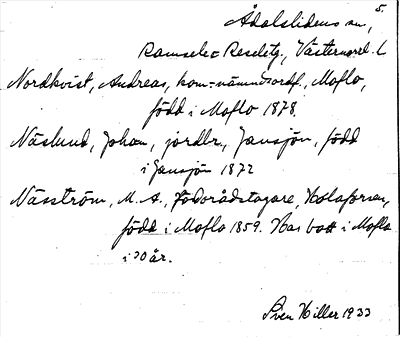 5.
Ådalslidens sn,
Ramsele & Reseletg, Västernorrl. L
Nordkvist, Andreas, kom-nämndsordf., Moflo,
född i Moflo 1878.
Näslund, Johan, jordbr., Jansjön, född
i Jansjön 1872
Näsström, M. A., födorådstagare, Holaforsen,
född i Moflo 1859. Has bott i Moflo
i 70 år.
Sven Hiller 1933